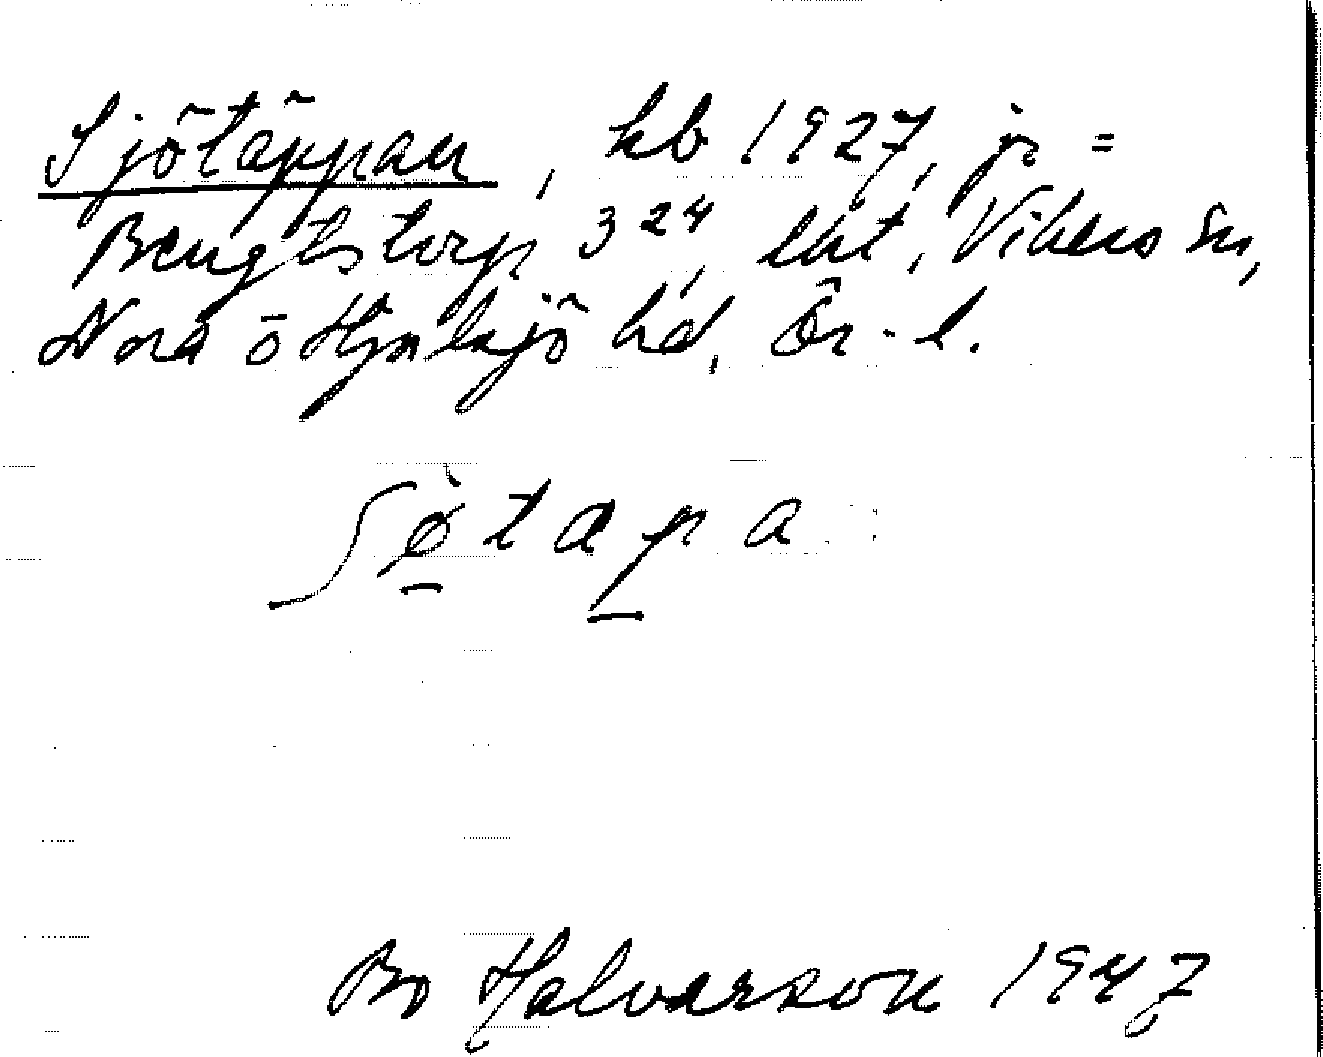 Sjötäppan, hb 1927, jr =
Bengtstorp 3²⁴, lht, Vikers sn,
Nora o Hjulsjö hd, Ör. l.
ʃø̀tapa
Bo Halvarson 1947